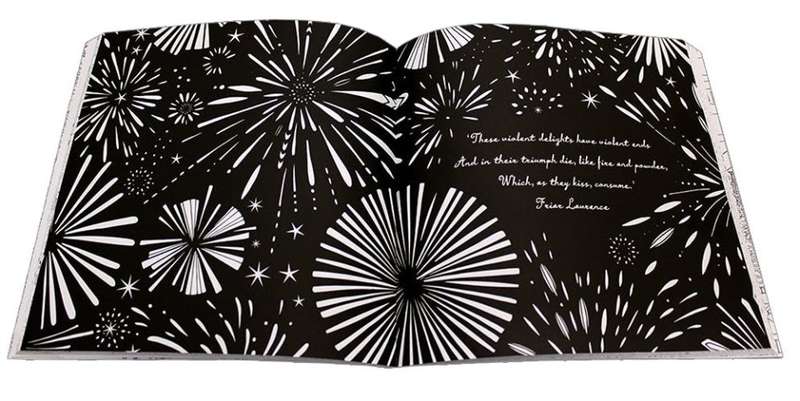 'These violent delights have violent ends
And in their triumph die, like fire and powder,
Which, as they kiss, consume.'
Friar Laurence